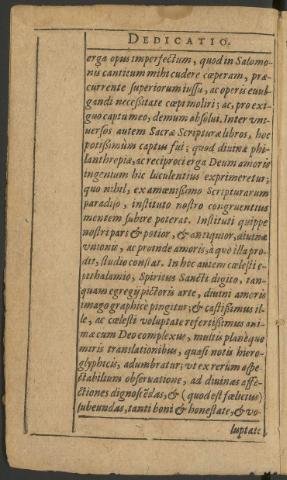 DEDICATIO.
erga opus imperfectum, quod in Salomo-
nis cantitum mihi cudere cœperam, præ-
currente superiorum iussu, ac operis evul-
gandi necessitate cœpt moliri; ac, pro exi-
guo captu meo, demum absolui. Inter vni-
uersos autem Sacræ Scripturæ libros, hoc
potissimùm captus fui; quod diuinæ phi-
lanthropia, ac reciproci erga Deum amoris
ingenium hic luculentius exprimeretur;
quo nihil, ex amœnissimo Scripturarum
paradiso, instituto nostro congruentius
mentem subire poterat. Instituti quippe
nostri pars & potior, & antiquior, diuinæ
vnionis, ac proinde amoris, à quo illa pro-
dit, studio constat. In hoc autem cœlesti e-
pithalamio, Spiritus Sancti digito, tan-
quam egregij pictoris arte, diuini amoris
imago graphicè pingitur; & castissimus il-
le, ac cœlesti voluptate refertissimus ani-
mæ cum Deo complexus, multis planè quo
miris translationibus, quasi notis hiero-
glyphicis, adumbratur; vt ex rerum aspe-
ctabilium obseruatione, ad diuinas affe-
ctiones dignoscēdas, & (quod est fœlicius)
subeundas, tanti boni & honestate, & vo-
luptate